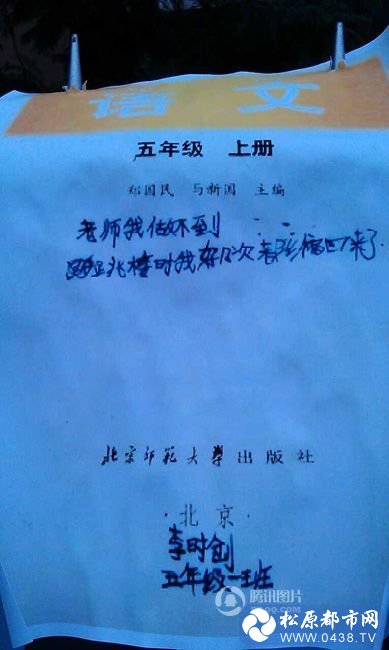 语文
五年级 上册
郑国民 马新国 主编
老师我估不到
跳时我好几次都缩回来了
北京师范大学出版社
·北京·
李时创
五年级一班
腾讯图片
松原都市网
www.0438.TV